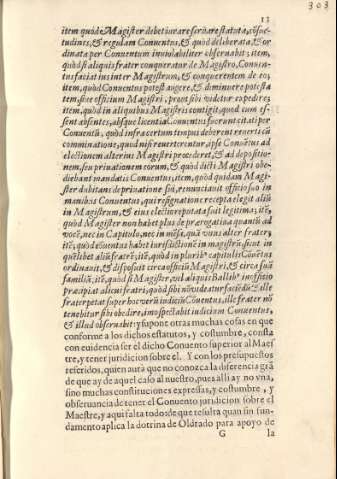 303
13
item quòd Magister debet iurare seruare statuta, cõsue-
tudines, & regulam Conuentus, & quòd deliberata, & or-
dinata per Conuentum inuiolabiliter obseruabit; item,
quòd si aliquis frater conqueratur de Magistro, Conuen-
tus faciat ius inter Magistrum, & conquerentem de eo;
item, quòd Conuentus potest augere, & diminuere potesta
tem, siue officium Magistri, prout sibi videtur expedire;
item, quòd in aliquibus Magistris contigit, quòd cum es-
sent absentes, absque licentia Conuentus fuerunt citati per
Conuentũ, quòd infra certum tempus deberent reuerti cũ
comminatione, quòd nisi reuerterentur, ipse Conuẽtus ad
electionem alterius Magistri procederet, & ad depositio-
nem, seu priuationem eorum, & quòd dicti Magistri obe-
diebant mandatis Conuentus; item, quòd quidam Magi-
ster dubitans de priuatione sui, renunciauit officio suo in
manibus Conuentus, qui resignatione recepta elegit aliũ
in Magistrum, & eius electio reputata fuit legitima; itẽ,
quòd Magister non habet plus de prærogatiua quantũ ad
vocẽ, nec in Capitulo, nec in mẽsa, quã vnus alter frater;
itẽ, quòd cõuentus habet iurisdictionẽ in magistrũ, sicut in
quẽlibet aliũ fratrẽ; itẽ, quòd in pluribꝰ capitulis Cõuẽtus
ordinauit, & disposuit circa officiũ Magistri, & circa suã
familiã; itẽ, quòd si Magister, vel aliquis Balliuꝰ in officio
præcipiat alicui fratri, quòd sibi nõ videatur faciẽdũ, & ille
frater petat super hoc verũ iudiciũ Cõuentus, ille frater nõ
tenebitur sibi obedire, imo spectabit iudicium Conuentus,
& illud obseruabit: y supone otras muchas cosas en que
conforme a los dichos estatutos, y costumbre, consta
con euidencia ser el dicho Conuento superior al Maes
tre, y tener juridicion sobre el. Y con los presupuestos
referidos, quien aurà que no conozca la diferencia grã
de que ay de aquel caso al nuestro, pues alli ay no vna,
sino muchas constituciones expressas, y costumbre, y
obseruancia de tener el Conuento juridicion sobre el
Maestre, y aqui falta todo: de que resulta quan sin fun-
damento aplica la dotrina de Oldrado para apoyo de
G la